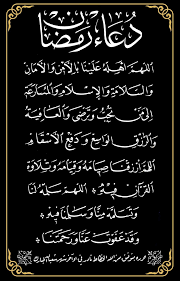 دعاء رمضان
اللهم أهله علينا بالأمن والأمان
والسلامة والإسلام والمسارعة
إلى ما تحب وترضى والعافية
والرزق الواسع ودفع الأسقام
اللهم ارزقنا صيامه وقيامه وتلاوة
القرآن فيه اللهم سلمه لنا
وتسلمه منا وسلمنا فيه
وقد عفوت عنا ورحمتنا